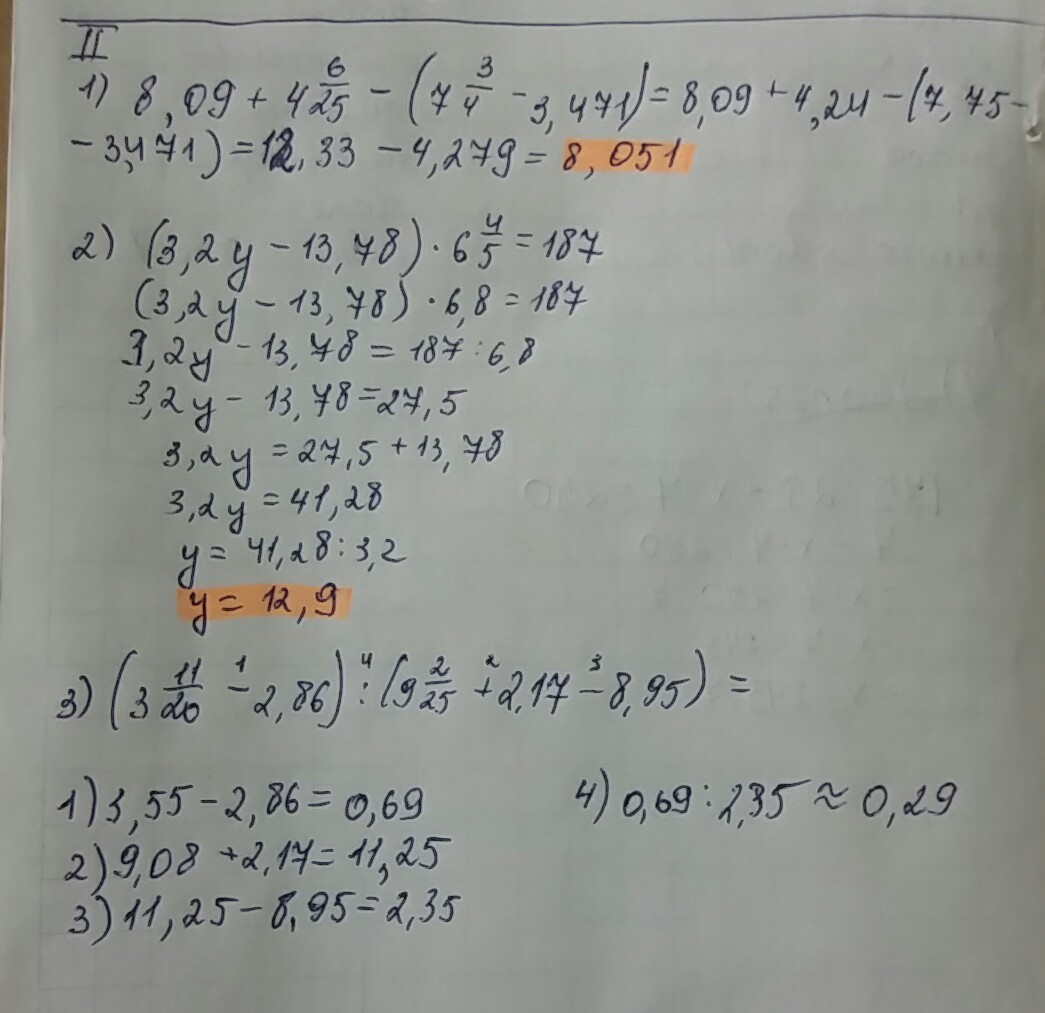 II
1) 8,09 + 4 6/25 - (7 3/4 - 3,471) = 8,09 + 4,24 - (7,75 -
- 3,471) = 12,33 - 4,279 = 8,051
2) (3,2y - 13,78) · 6 4/5 = 187
(3,2y - 13,78) · 6,8 = 187
3,2y - 13,78 = 187 : 6,8
3,2y - 13,78 = 27,5
3,2y = 27,5 + 13,78
3,2y = 41,28
y = 41,28 : 3,2
y = 12,9
1 4 2 3
3) (3 11/20 - 2,86) : (9 2/25 + 2,17 - 8,95) =
1) 3,55 - 2,86 = 0,69 4) 0,69 : 2,35 ≈ 0,29
2) 9,08 + 2,17 = 11,25
3) 11,25 - 8,95 = 2,35